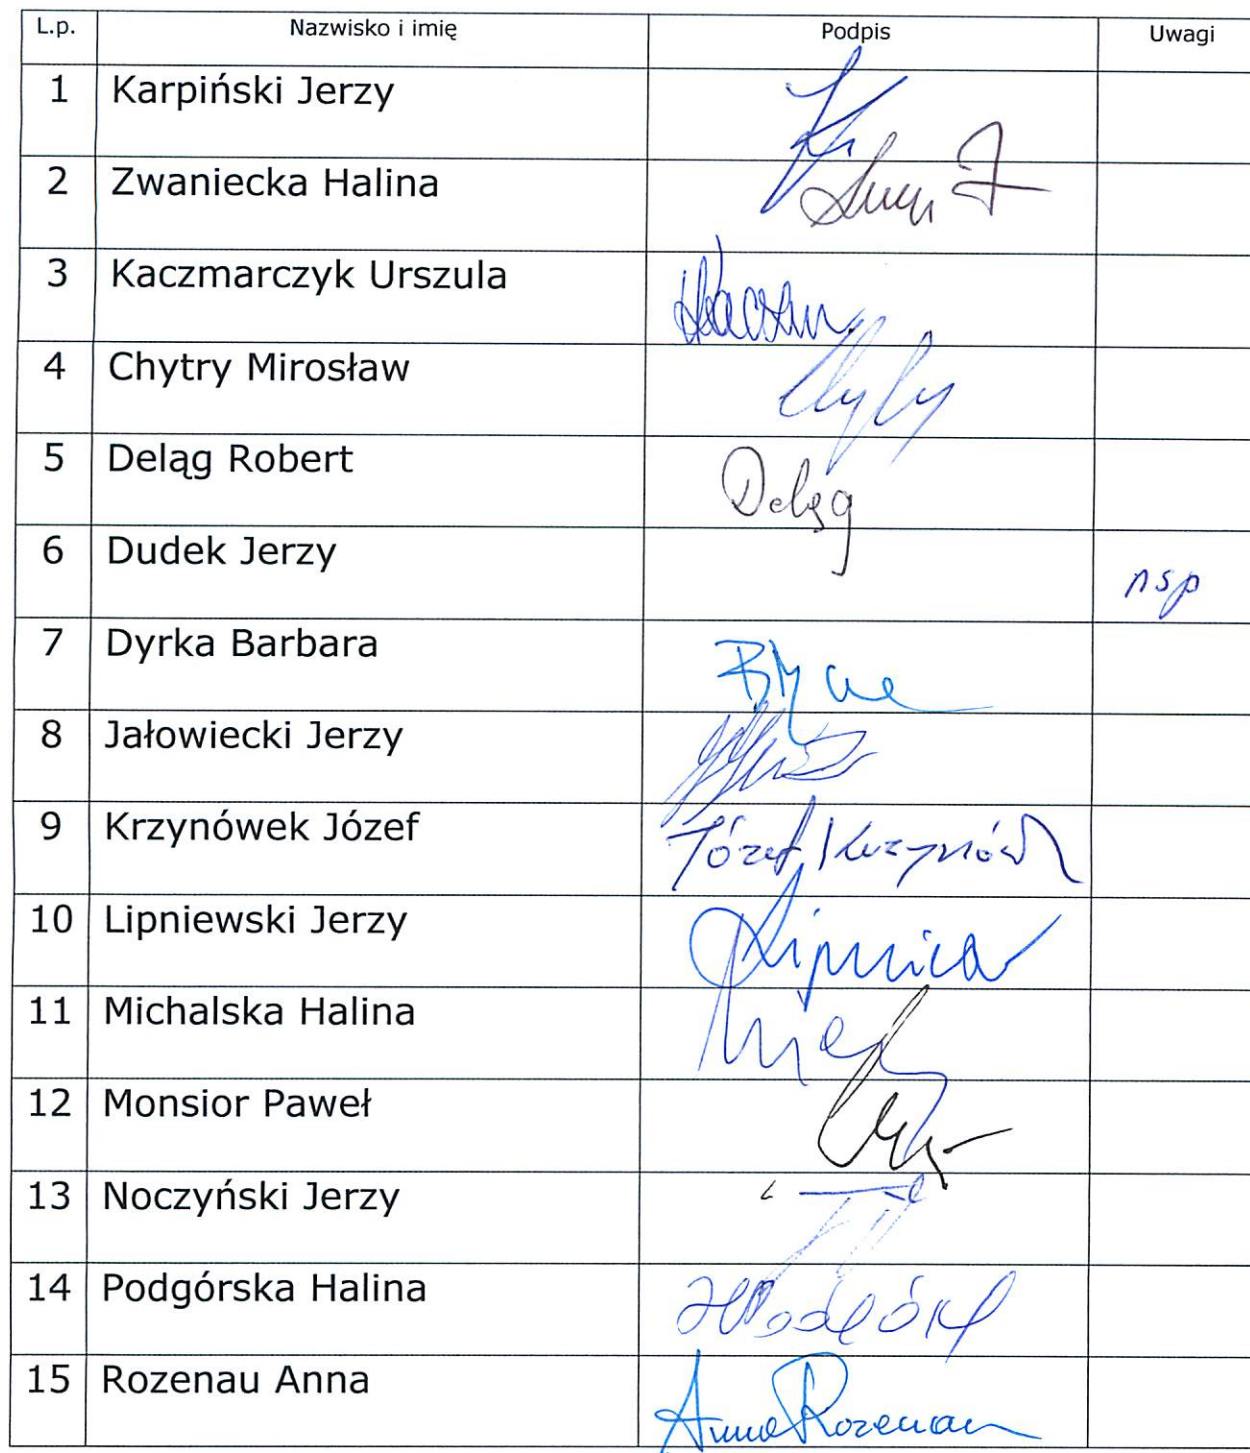 L.p. Nazwisko i imię Podpis Uwagi
1 Karpiński Jerzy
2 Zwaniecka Halina
3 Kaczmarczyk Urszula
4 Chytry Mirosław
5 Deląg Robert Deląg
6 Dudek Jerzy nsp
7 Dyrka Barbara
8 Jałowiecki Jerzy
9 Krzynówek Józef Józef
10 Lipniewski Jerzy
11 Michalska Halina
12 Monsior Paweł
13 Noczyński Jerzy
14 Podgórska Halina
15 Rozenau Anna Anna Rozenau